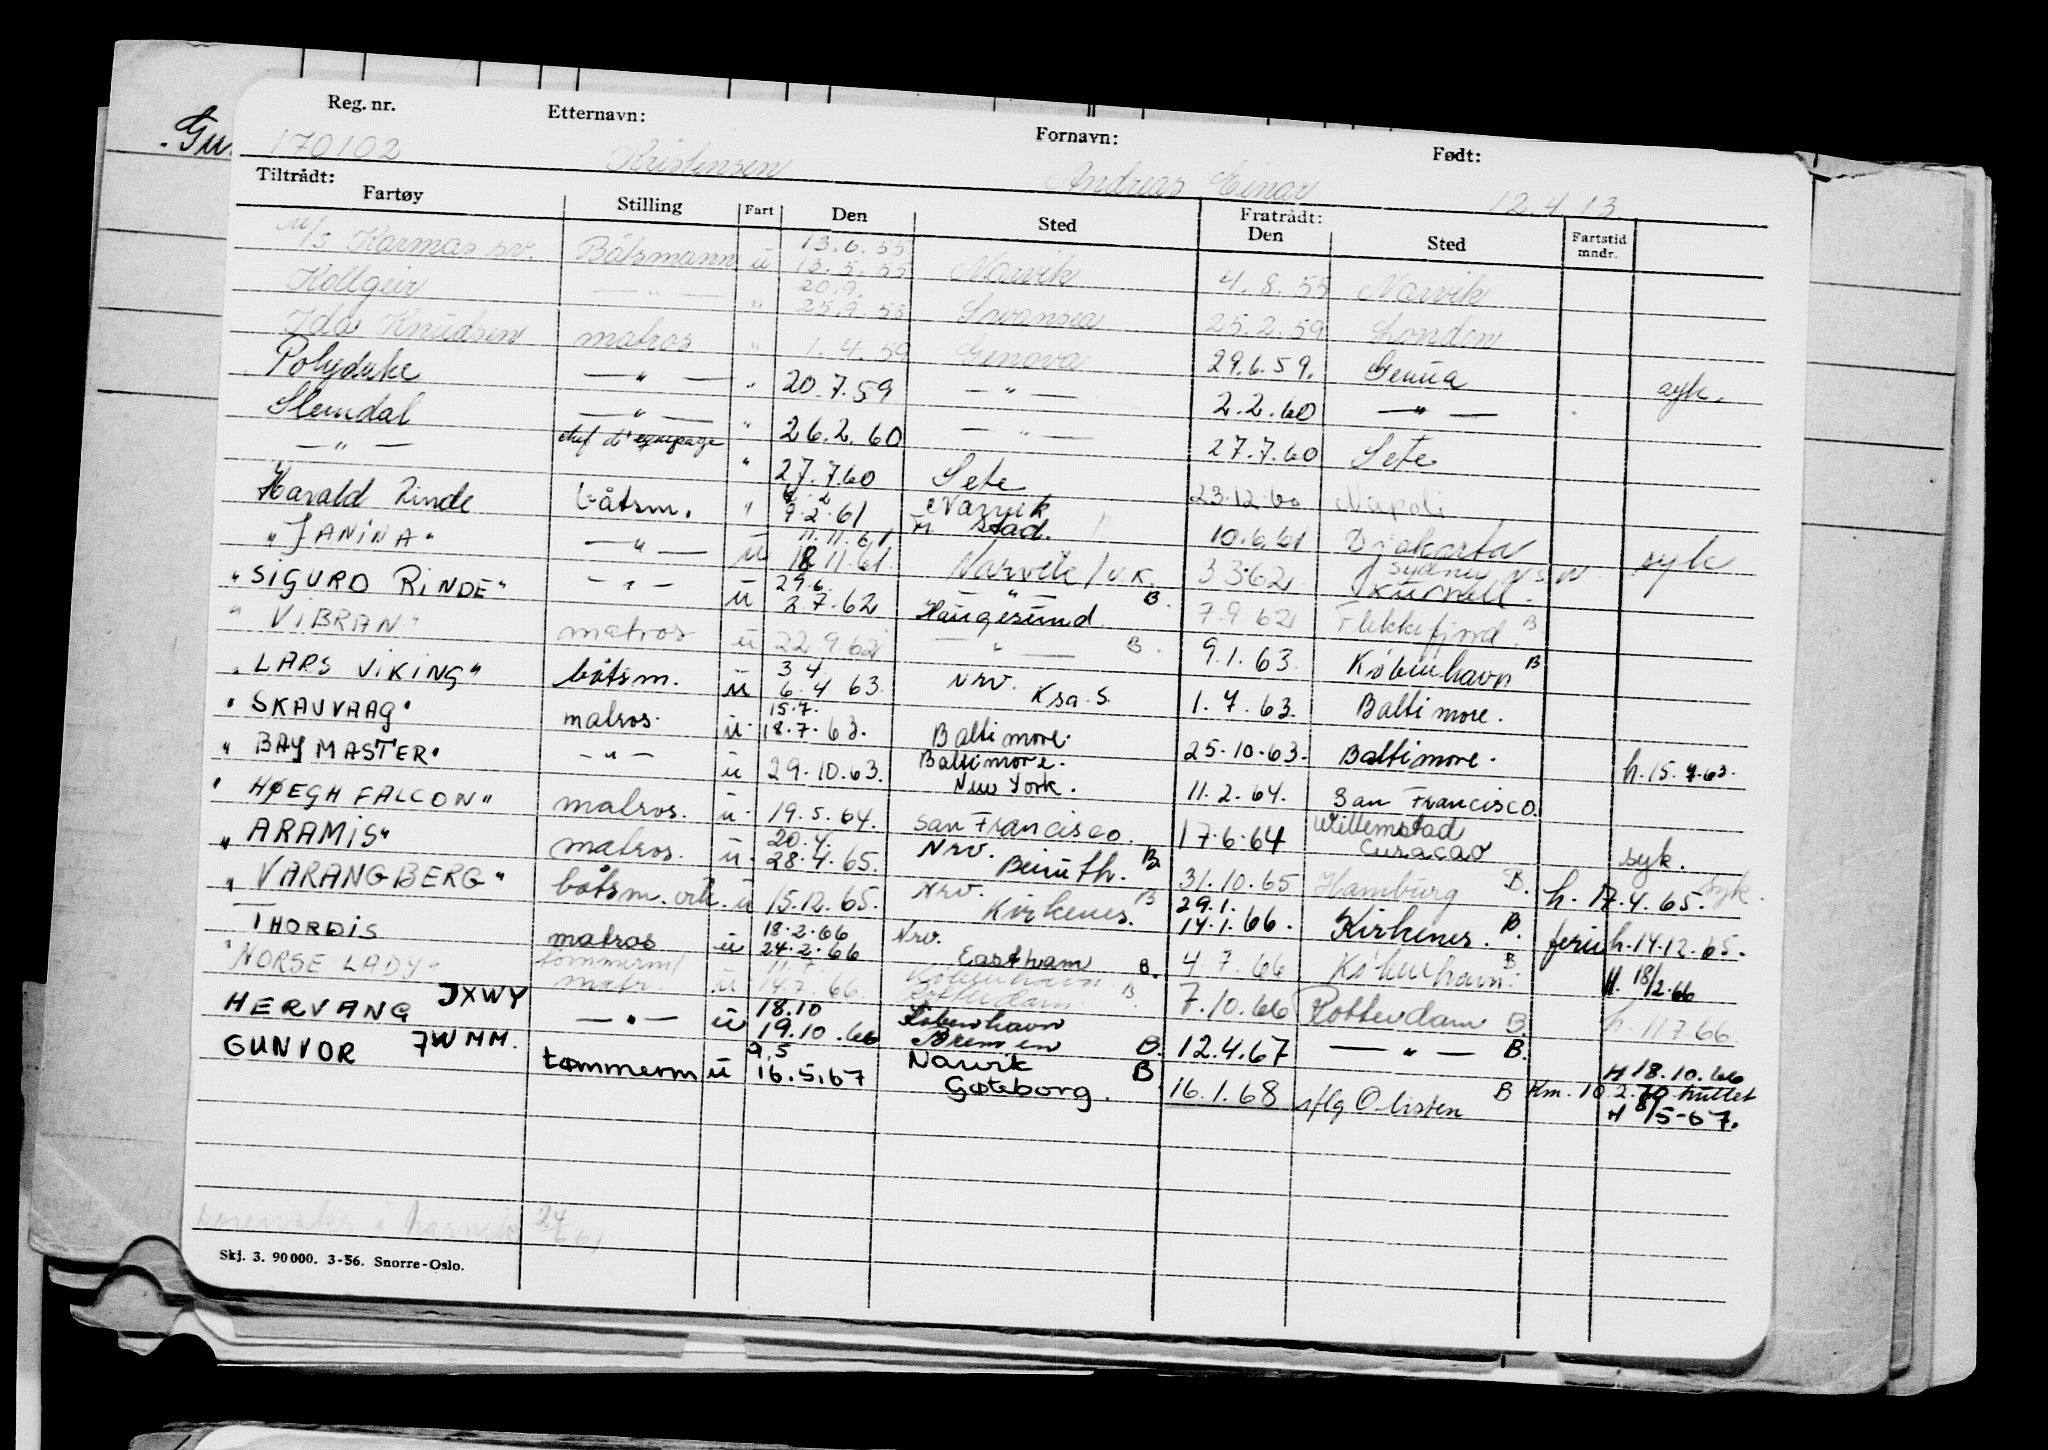 Reg. nr. Etternavn: Fornavn: Født:
170102 Kristensen Andreas Einar 12.4.13
Tiltrådt: Fratrådt:
Fartøy Stilling Fart Den Sted Den Sted Fartstid mndr.
M/S Karmas sv. Båtsmann u 13.6.55 13.5.55 Narvik 4.8.55 Narvik
Kollgeir — " — " 20.9. 25.9.55 Swansea 25.2.59 London
Ida Knudsen matros " 1.4.59 Genova 29.6.59. Genua syk.
Polyduke — " — " 20.7.59 — " — 2.2.60 — " —
Slemdal — " — " 26.2.60 — " — 27.7.60 Sete
— " — chef d'equipage " 27.7.60 Sete 23.12.60 Napoli
Harald Rinde båtsm. " 9.2.61 Narvik Fr. stad. 10.6.61 Djakarta syk
" JANINA " — " — ü 11.11.61 18.11.61. Narvik / U.K. 3.3.62 Sydney N.S.W. Kurnell.
" SIGURD RINDE " — " — ü 29.6. 2.7.62 — " — Haugesund. B. 7.9.62 Flekkefjord. B
" VIBRAN " matros ü 22.9.62 — " — B. 9.1.63. København B
" LARS VIKING " båtsm. ü 3.4 6.4.63. Nrv. Ksa.S. 1.7.63. Baltimore.
" SKAUVAAG " matros. ü 15.7. 18.7.63. Baltimore. 25.10.63. Baltimore. h.15.7.63.
" BAY MASTER " — " — ü 29.10.63. Baltimore. New York. 11.2.64. San Francisco.
" HØEGH FALCON " matros. ü 19.5.64. San Francisco. 17.6.64 Willemstad Curacao syk.
" ARAMIS " matros. ü 20.4. 28.4.65. Nrv. Beiruth. B. 31.10.65 Hamburg B. h. 17.4.65. Syk.
" VARANGBERG " båtsm. vik. ü 15.12.65. Nrv. Kirkenes. B 29.1. 14.1.66. Kirkenes. B. ferie h.14.12.65.
THORDIS matros ü 18.2.66 24.2.66 Nrv. Eastham B. 4.7.66 København. B H. 18/2.66
" NORSE LADY " tømmerm/ matr. ü 11.7. 14.7.66. København. Rotterdam. B. 7.10.66 Rotterdam B. h 11.7.66
HERVANG JXWY — " — ü 18.10 19.10.66 København Bremen B. 12.4.67 — " — B. H 18.10.66
GUNVOR JWMM. tømmerm ü 9.5 16.5.67 Narvik Gøteborg. B 16.1.68 s/lg O-listen B Km. 10.2.70 hullet H 8/5-67.
24/6 61
Skj. 3. 90000. 3-56. Snorre-Oslo.